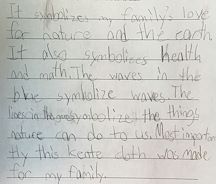 It symbolizes my family's love
for nature and the earth
It also symbolizes health
and math. The waves in the
blue symbolize waves. The
lines in the symbolizes the things
nature can do to us. Most importan
tly this kente cloth was made
for my family.